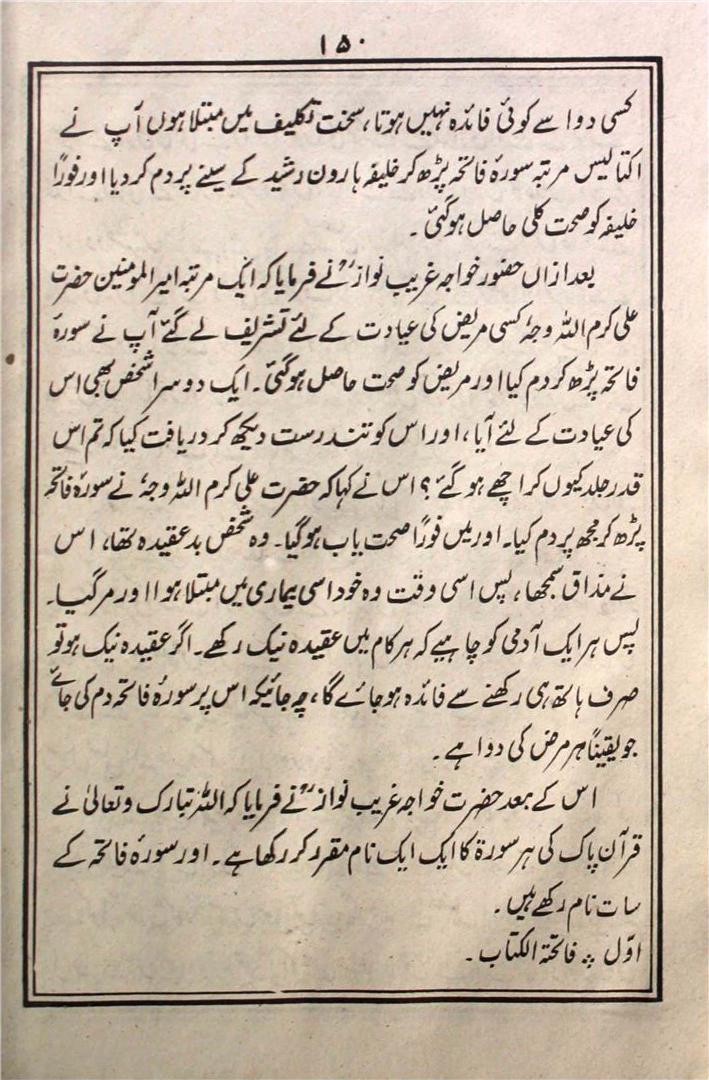 ۱۵۰
کسی دوا سے کوئی فائدہ نہیں ہوتا، سخت تکلیف میں مبتلا ہوں آپ نے
اکتالیس مرتبہ سورۂ فاتحہ پڑھ کر خلیفہ ہارون رشید کے سینے پر دم کر دیا اور فوراً
خلیفہ کو صحت کلی حاصل ہو گئی۔
بعد ازاں حضور خواجہ غریب نوازؒ نے فرمایا کہ ایک مرتبہ امیر المومنین حضرت
علی کرم اللہ وجہٗ کسی مریض کی عیادت کے لئے تشریف لے گئے آپ نے سورۂ
فاتحہ پڑھ کر دم کیا اور مریض کو صحت حاصل ہو گئی۔ ایک دوسرا شخص بھی اس
کی عیادت کے لئے آیا، اور اس کو تندرست دیکھ کر دریافت کیا کہ تم اس
قدر جلد کیوں کر اچھے ہو گئے؟ اس نے کہا کہ حضرت علی کرم اللہ وجہٗ نے سورۂ فاتحہ
پڑھ کر مجھ پر دم کیا۔ اور میں فوراً صحت یاب ہو گیا۔ وہ شخص بد عقیدہ تھا، اس
نے مذاق سمجھا، پس اسی وقت وہ خود اسی بیماری میں مبتلا ہوا اور مر گیا۔
پس ہر ایک آدمی کو چاہیے کہ ہر کام میں عقیدہ نیک رکھے۔ اگر عقیدہ نیک ہو تو
صرف ہاتھ ہی رکھنے سے فائدہ ہو جائے گا، چہ جائیکہ اس پر سورۂ فاتحہ دم کی جائے
جو یقیناً ہر مرض کی دوا ہے۔
اس کے بعد حضرت خواجہ غریب نوازؒ نے فرمایا کہ اللہ تبارک و تعالیٰ نے
قرآن پاک کی ہر سورۃ کا ایک ایک نام مقرر کر رکھا ہے۔ اور سورۂ فاتحہ کے
سات نام رکھے ہیں۔
اوّل ؞ فاتحۃ الکتاب۔